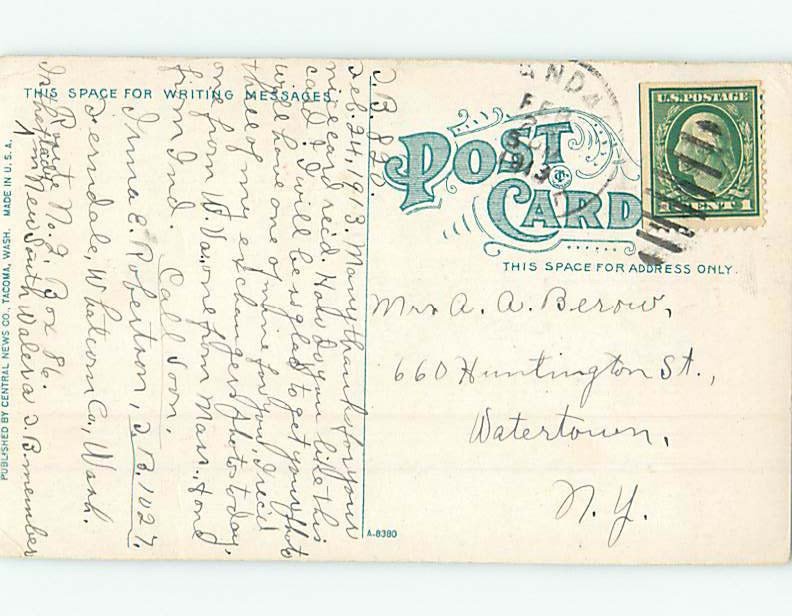 THIS SPACE FOR WRITING MESSAGES
POST CARD
THIS SPACE FOR ADDRESS ONLY.
U.S. POSTAGE
1 CENT 1
FEB
1913
Mrs A. A. Berow,
660 Huntington St.,
Watertown,
N. Y.
Feb. 24, 1913. Many thanks for your
nice card rec'd. How do you like this
card? I will be so glad to get your photo
will have one of mine for you, I rec'd
three of my exchangers photos today,
one from W. Va. one from Mass., & one
from Ind. Call Soon,
Irma E. Robertson, I. B. 1027.
Ferndale, Whatcom Co., Wash.
Route No. 2. Box 86.
New South Wales a I. B. member
A-8380
PUBLISHED BY CENTRAL NEWS CO., TACOMA, WASH. MADE IN U.S.A.